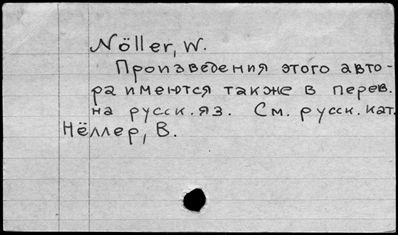 Nöller, W.
Произведения этого авто-
ра имеются также в перев.
на русск.яз. См. русск.кат.
Нёллер, В.